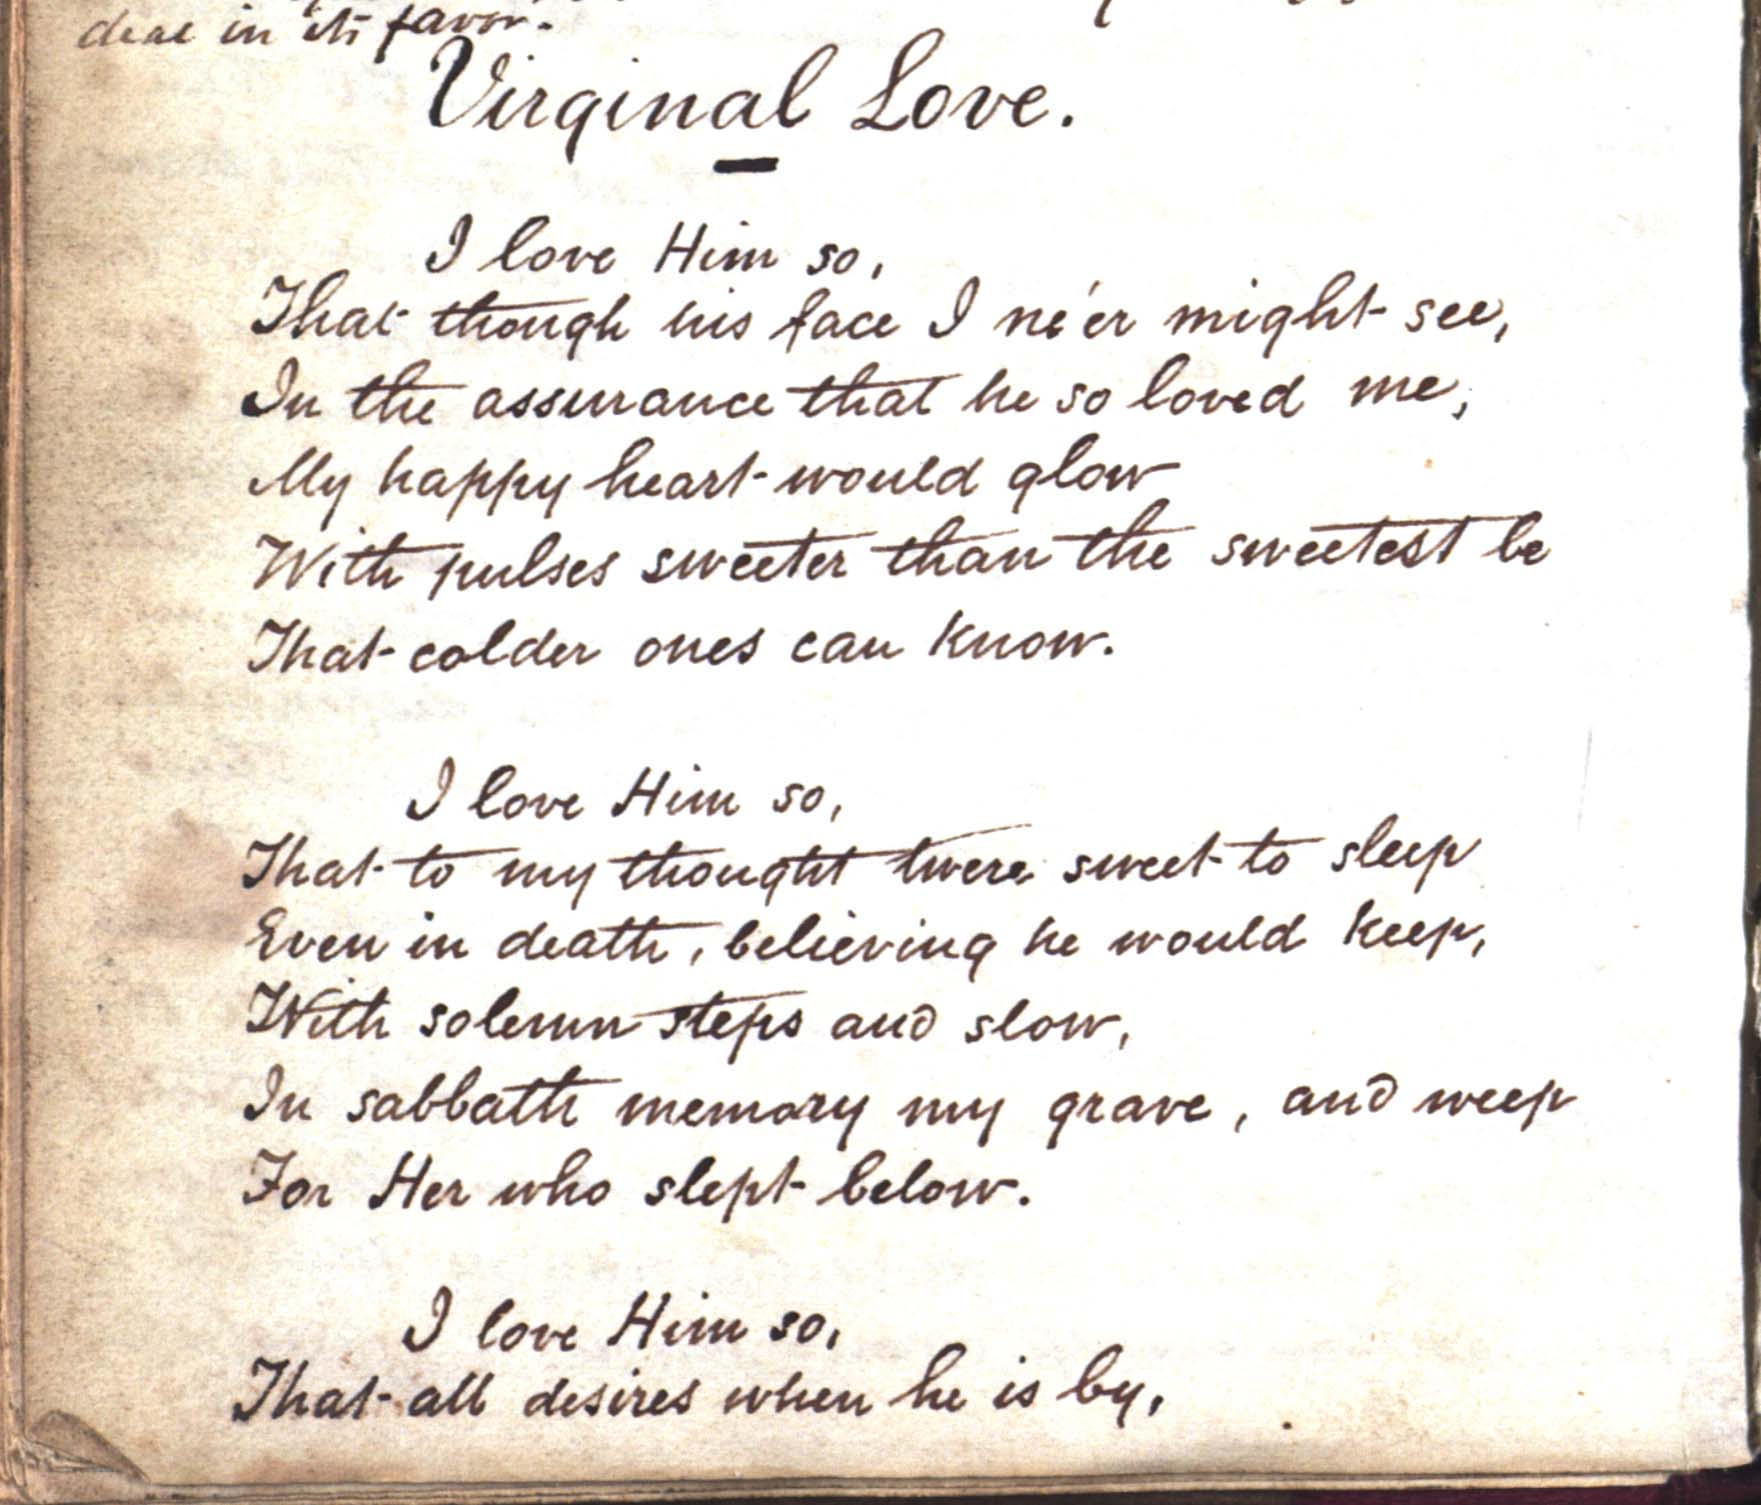 deal in its favor.
Virginal Love.
I love Him so,
That though his face I ne'er might see,
In the assurance that he so loved me,
My happy heart would glow
With pulses sweeter than the sweetest be
That colder ones can know.
I love Him so,
That to my thought twere sweet to sleep
Even in death, believing he would keep,
With solemn steps and slow,
In sabbath memory my grave, and weep
For Her who slept below.
I love Him so,
That all desires when he is by,